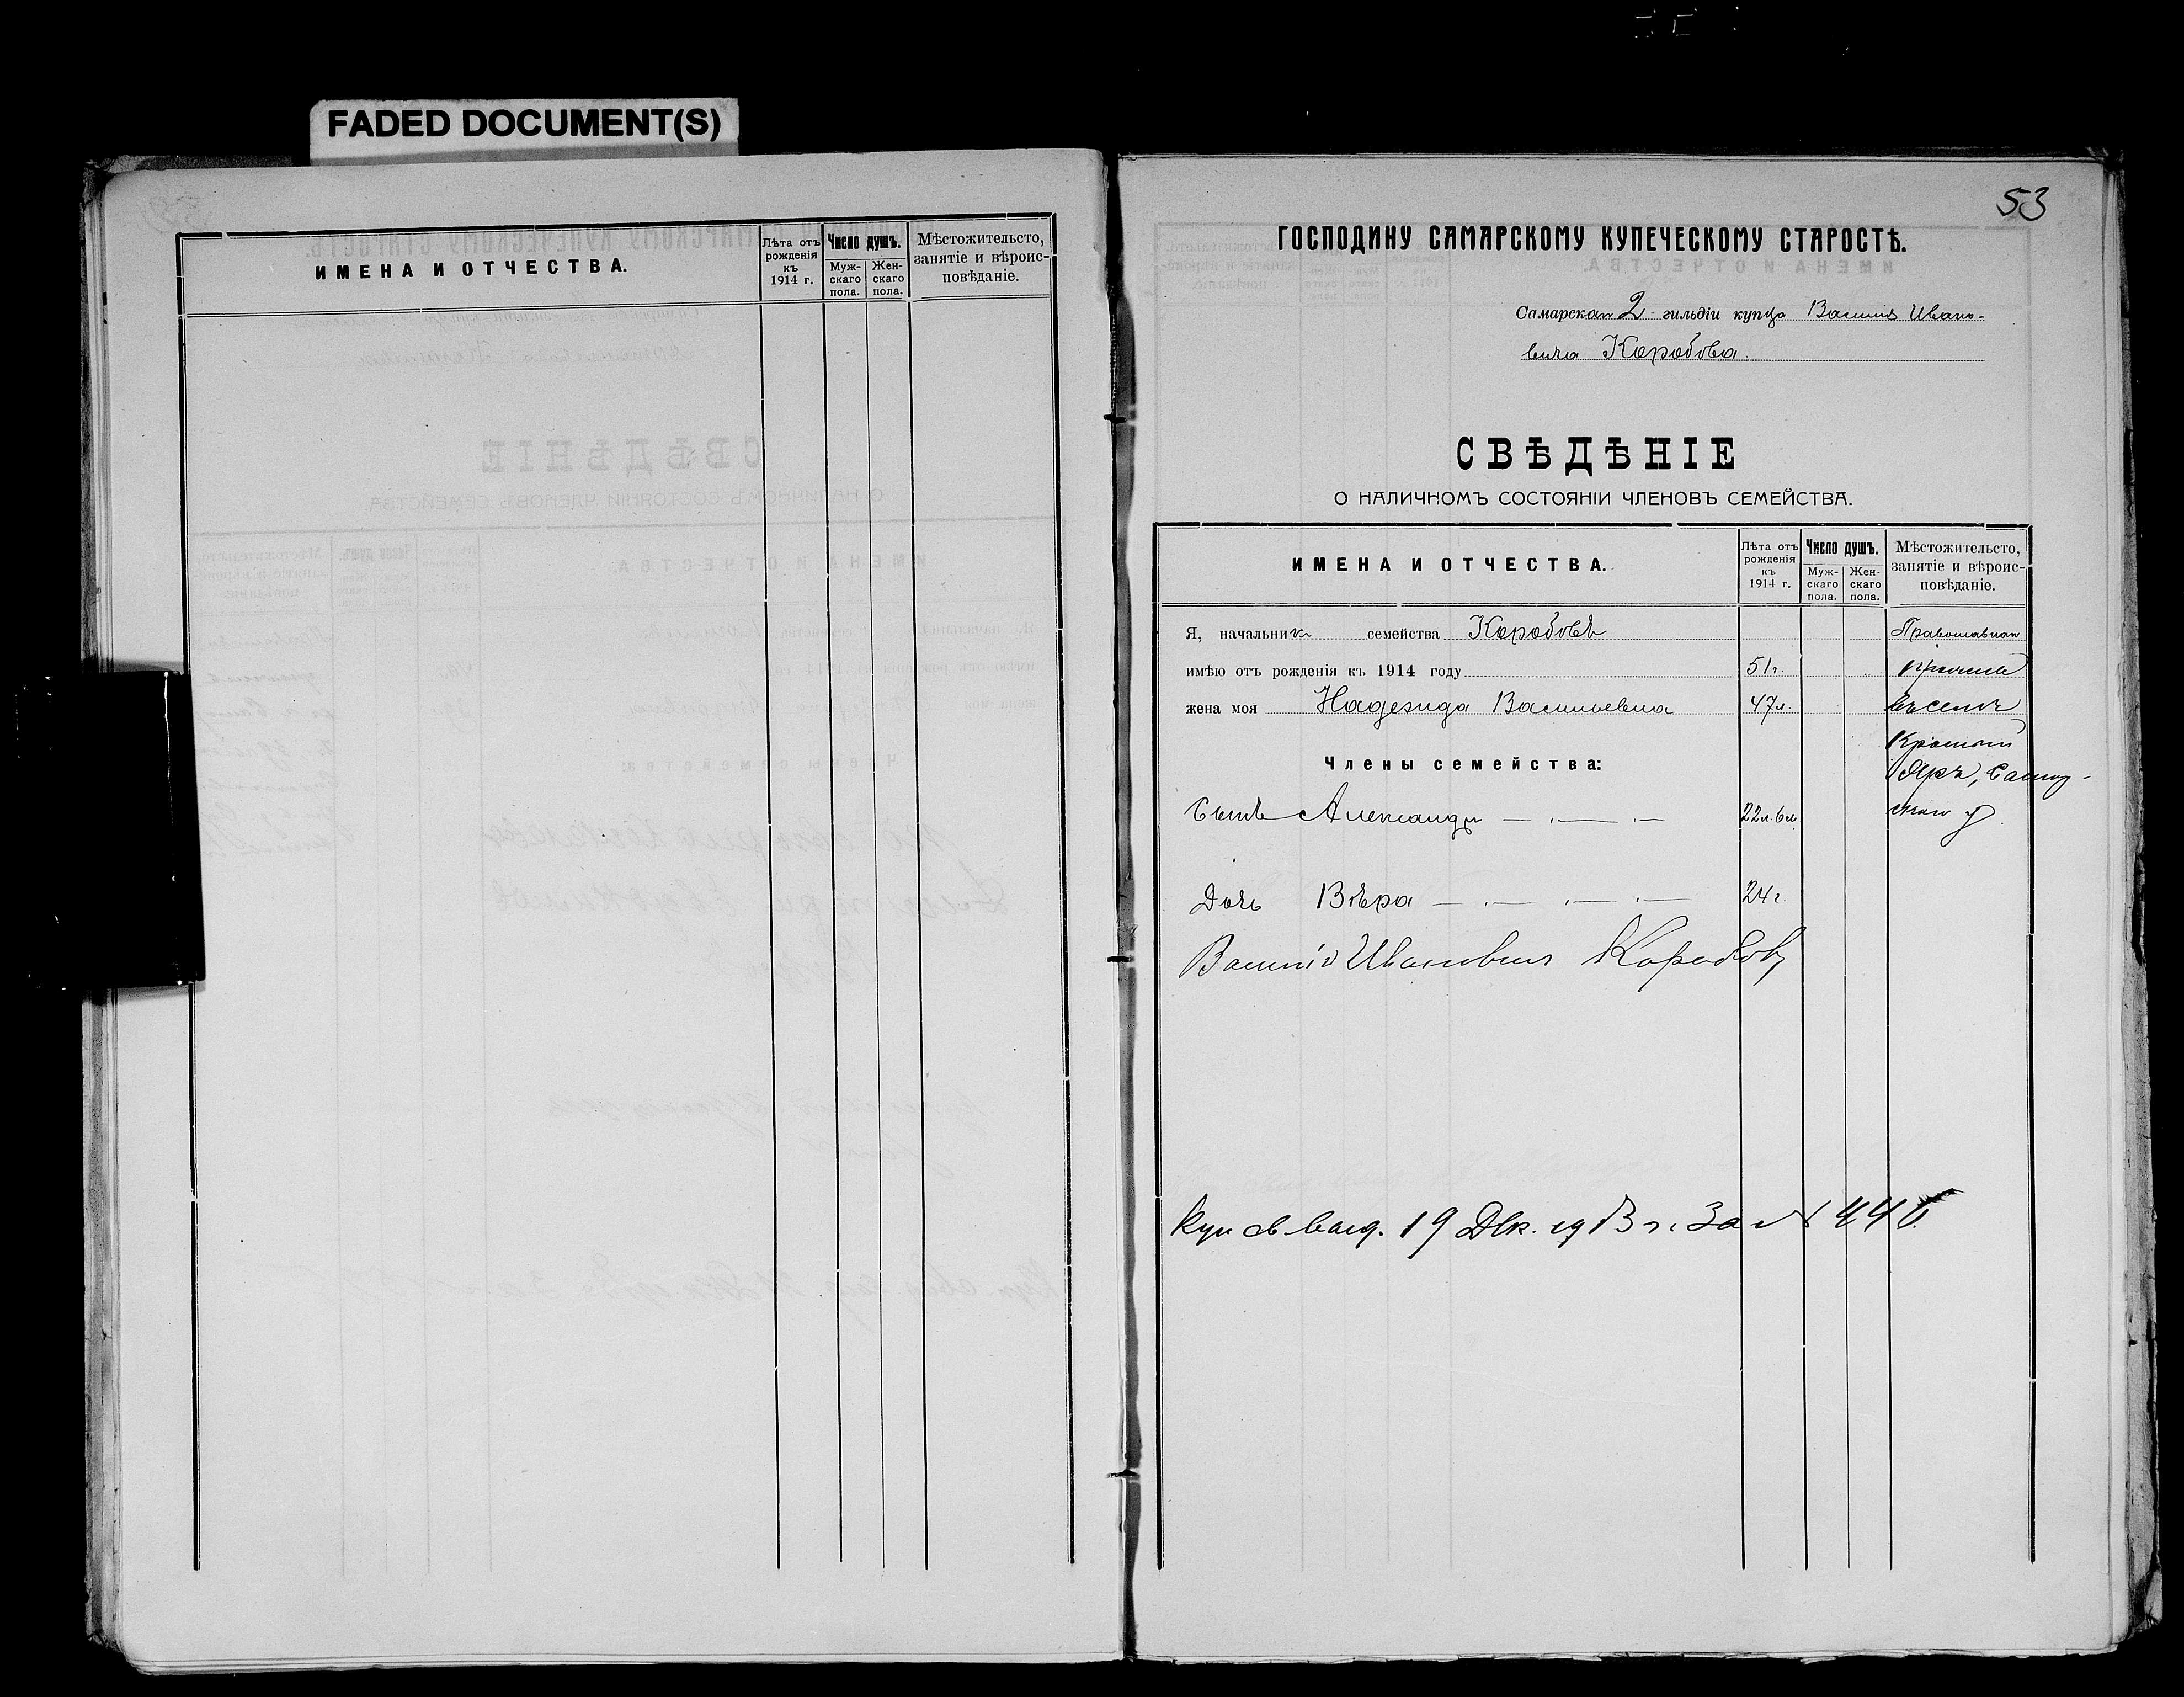 FADED DOCUMENT(S)
ИМЕНА И ОТЧЕСТВА.
Лѣта отъ рожденія къ 1914 г.
Число душъ.
Мужскаго пола.
Женскаго пола.
Мѣстожительсто, занятіе и вѣроисповѣданіе.
53
ГОСПОДИНУ САМАРСКОМУ КУПЕЧЕСКОМУ СТАРОСТѢ.
Самарскаго 2 гильдіи купца Василія Ивано-
вича Коробова.
СВѢДѢНІЕ
О НАЛИЧНОМЪ СОСТОЯНІИ ЧЛЕНОВЪ СЕМЕЙСТВА.
ИМЕНА И ОТЧЕСТВА.
Лѣта отъ рожденія къ 1914 г.
Число душъ.
Мужскаго пола.
Женскаго пола.
Мѣстожительсто, занятіе и вѣроисповѣданіе.
Я, начальникъ семейства Коробовъ Православнаго
имѣю отъ рожденія къ 1914 году 51 г.
жена моя Надежда Васильевна 47 л. въ селѣ
Красный
Члены семейства: Яръ,
Сынъ Александръ 22 л. 6 м. у
Дочь Вѣра 24 г.
Василій Ивановичъ Коробовъ
Куп св выд. 19 Дек. 1913 г. за №